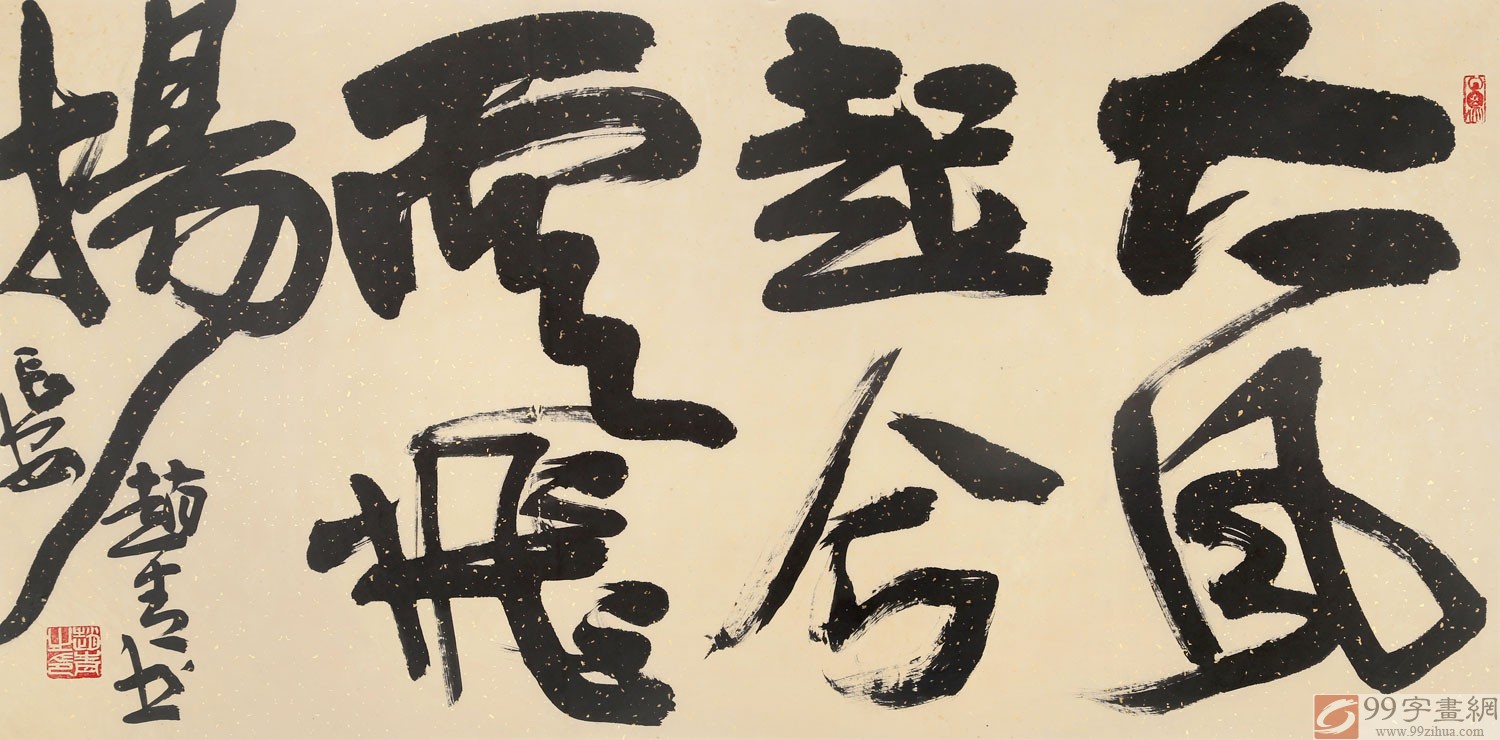 大風
起兮
雲飛
揚
長安
趙青书
趙青之印
99字畫網
www.99zihua.com